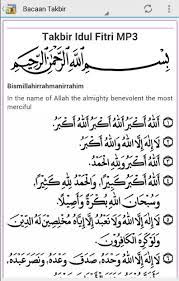 Bacaan Takbir
Takbir Idul Fitri MP3
بِسْمِ اللَّهِ الرَّحْمَنِ الرَّحِيمِ
Bismillahirrahmanirrahim
In the name of Allah the almighty benevolent the most
merciful
اَللهُ اَكْبَرُ اَللهُ اَكْبَرُ اَللهُ اَكْبَرُ.
لَا اِلٰهَ اِلَّا اللهُ وَاللهُ اَكْبَرُ.
اَللهُ اَكْبَرُ وَلِلّٰهِ الْحَمْدُ.
اَللهُ اَكْبَرُ كَبِيْرًا، وَالْحَمْدُ لِلّٰهِ كَثِيْرًا،
وَسُبْحَانَ اللهِ بُكْرَةً وَاَصِيْلًا.
لَا اِلٰهَ اِلَّا اللهُ وَلَا نَعْبُدُ اِلَّا اِيَّاهُ مُخْلِصِيْنَ لَهُ الدِّيْنَ
وَلَوْ كَرِهَ الْكَافِرُوْنَ.
لَا اِلٰهَ اِلَّا اللهُ وَحْدَهُ، صَدَقَ وَعْدَهُ، وَنَصَرَ عَبْدَهُ،